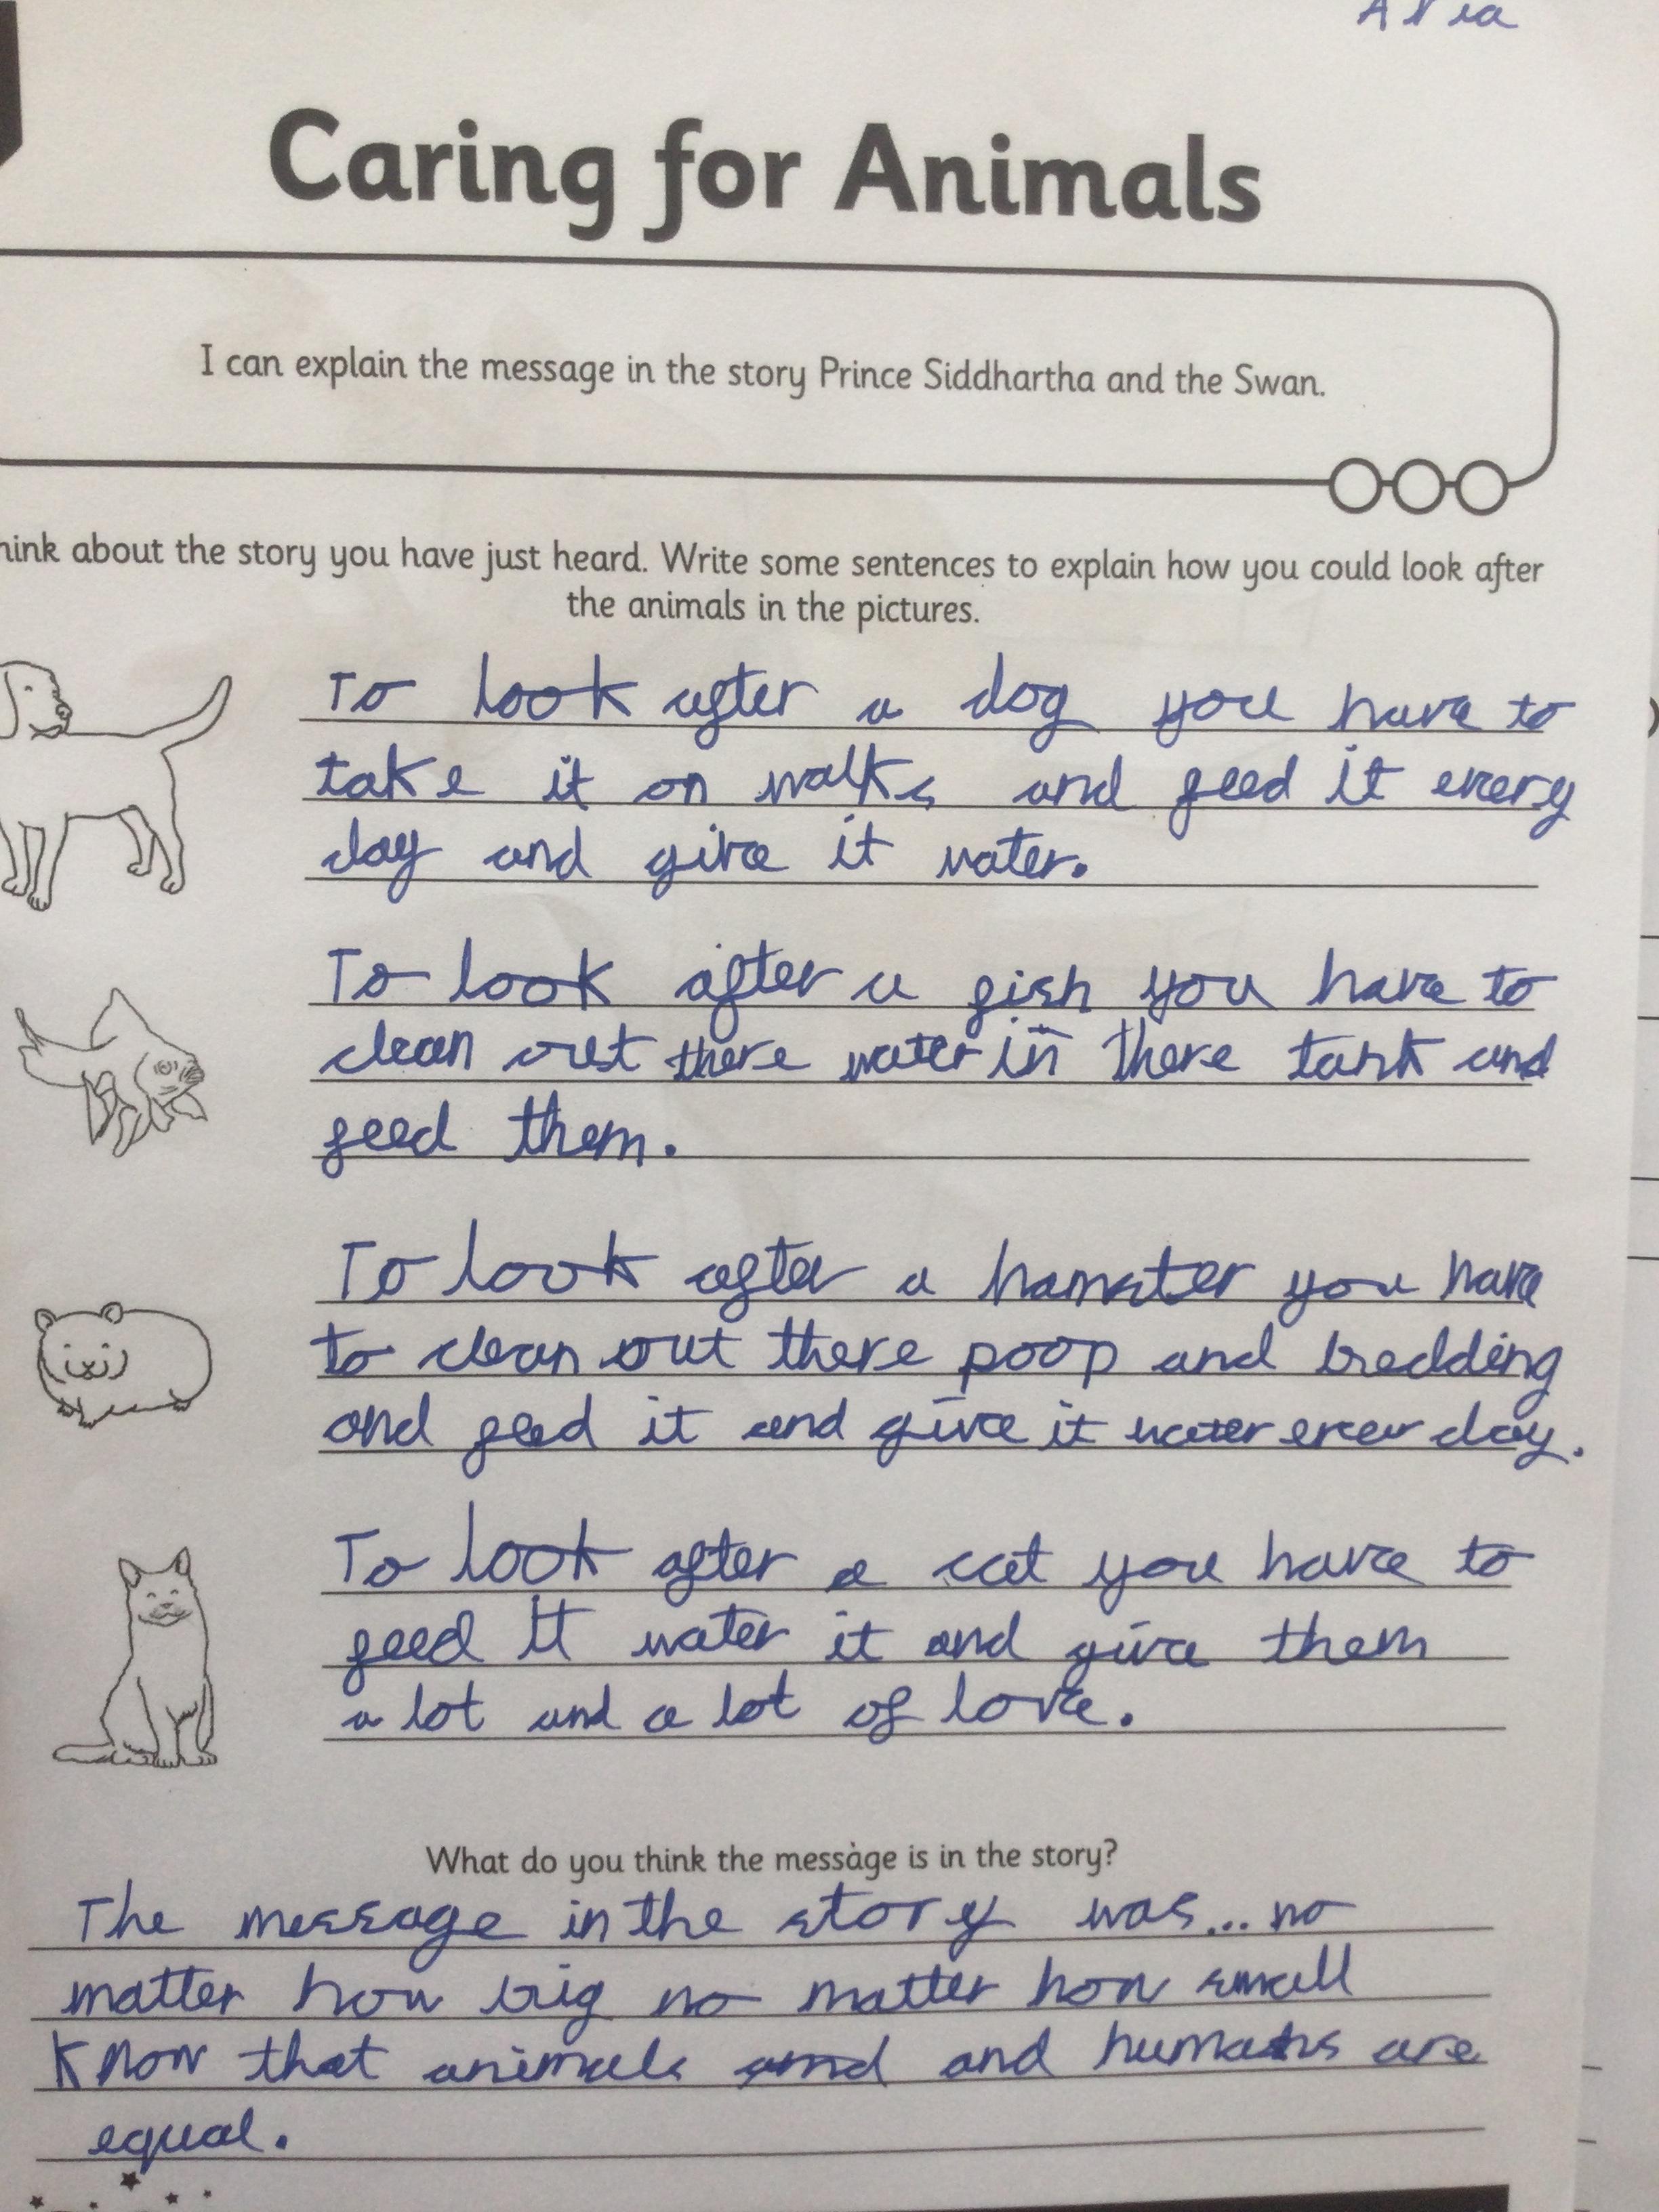 Caring for Animals
I can explain the message in the story Prince Siddhartha and the Swan.
hink about the story you have just heard. Write some sentences to explain how you could look after
the animals in the pictures.
To look after a dog you have to
take it on walks and feed it every
day and give it water.
To look after a fish you have to
clean out there water in there tank and
feed them.
To look after a hamster you have
to clean out there poop and bedding
and feed it and give it water day.
To look after a cat you have to
feed it water it and give them
a lot and a lot of love.
What do you think the message is in the story?
The message in the story was... no
matter how big no matter how small
know that animals and and humans are
equal.